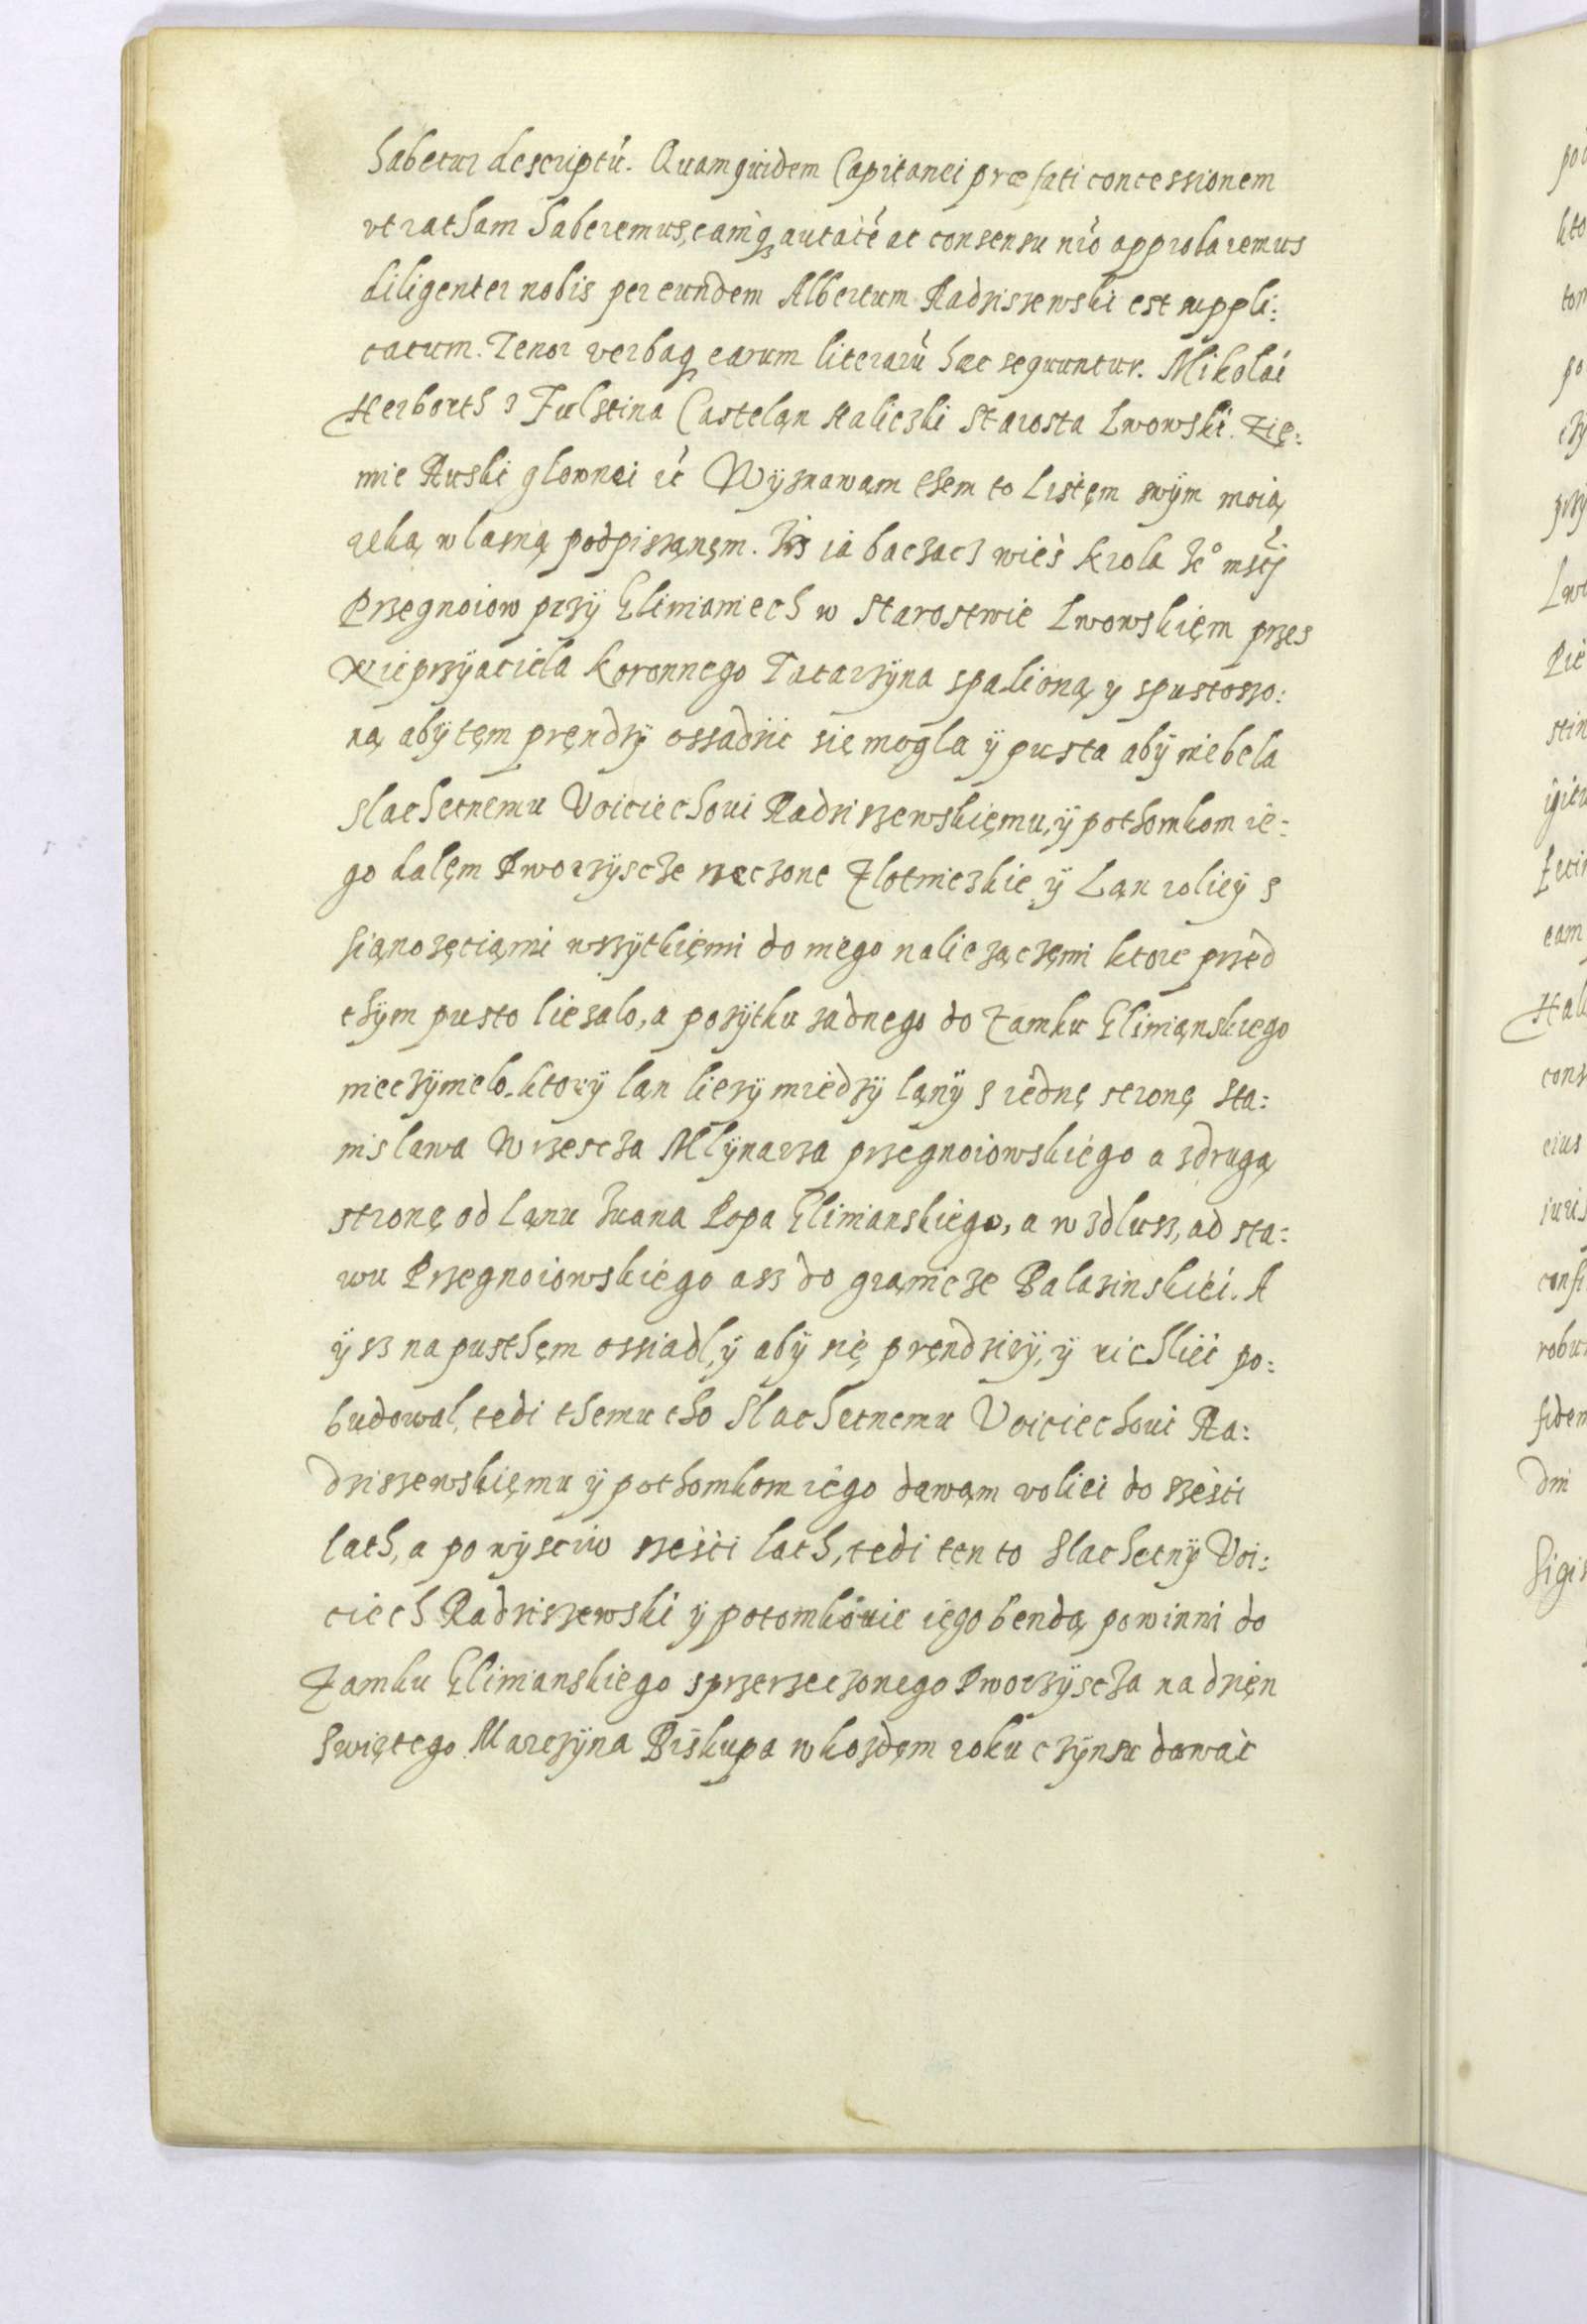 habetur descriptu̕. Quamquidem Capitanei præfati concessionem
vt ratham haberemus, eamq́ȝ autātē ac consensu nr̄o approbaremus
diligenter nobis per eundem Albertum Radziszewski est suppli:
catum. Tenor verbaqȝ earum literarū hæc sequuntur. Mikolái
Herborth z Fulstina Casteląn Haliczki Starosta Lwowski. Zię:
mie Ruski glownei ȓć Wyznawąm them to Listęm swÿm moią
ręką wlasną podpissąnęm. Izs ia baczacz wieś krola Je° mśćĳ
Przegnoiow przÿ Glinianiech w Starostwie Lwowskięm przes
Nieprzÿaciela koronnego Tatarzÿna spalioną y spustosso:
ną abÿ tęm pręndzÿ ossadzić się mogla ÿ pusta abÿ niebela
Slachetnemu Voiciechoui Radziszewskięmu, ÿ pothomkom ie:
go dalęm Dworzÿscze rzeczone Zlotniczkie, ÿ Ląn roliey s
sianożęciąmi wszÿtkięmi do niego naliezączęmi ktore przed
thÿm pusto liezalo, a pozÿtku zadnego do Zamku Glimąnskiego
nieczÿnielo. ktorÿ lan liezÿ miedzÿ ląnÿ s iednę stronę Sta:
nislawa Wrzescza Mlÿnarza przegnoiowskiego a zdrugą
stronę od ląnu Iuana Popa Glinianskiego, a wzdlusz, ad sta:
wu Przegnoiowskiego asz do grąnicze Balazinskiéi. A
ÿsz na pusthęm ossiadl, ÿ abÿ się pręndziéÿ, ÿ richliéi po:
budowal, tedi themu tho Slachetnemu Voiciechoui Ra:
dziszewskięmu ÿ pothomkom iego dawąm voliei do szesći
lath, a po wÿsciw szesći lath, tedi ten to Slachetnÿ Voi:
ciech Radziszewski ÿ potomkouie iego bendą powinni do
Zamku Glinianskiego sprzerzeczonego Dworzÿscza na dzięn
Swiętego Marczÿna Biskupa wkożdęm roku czÿnsu dawać